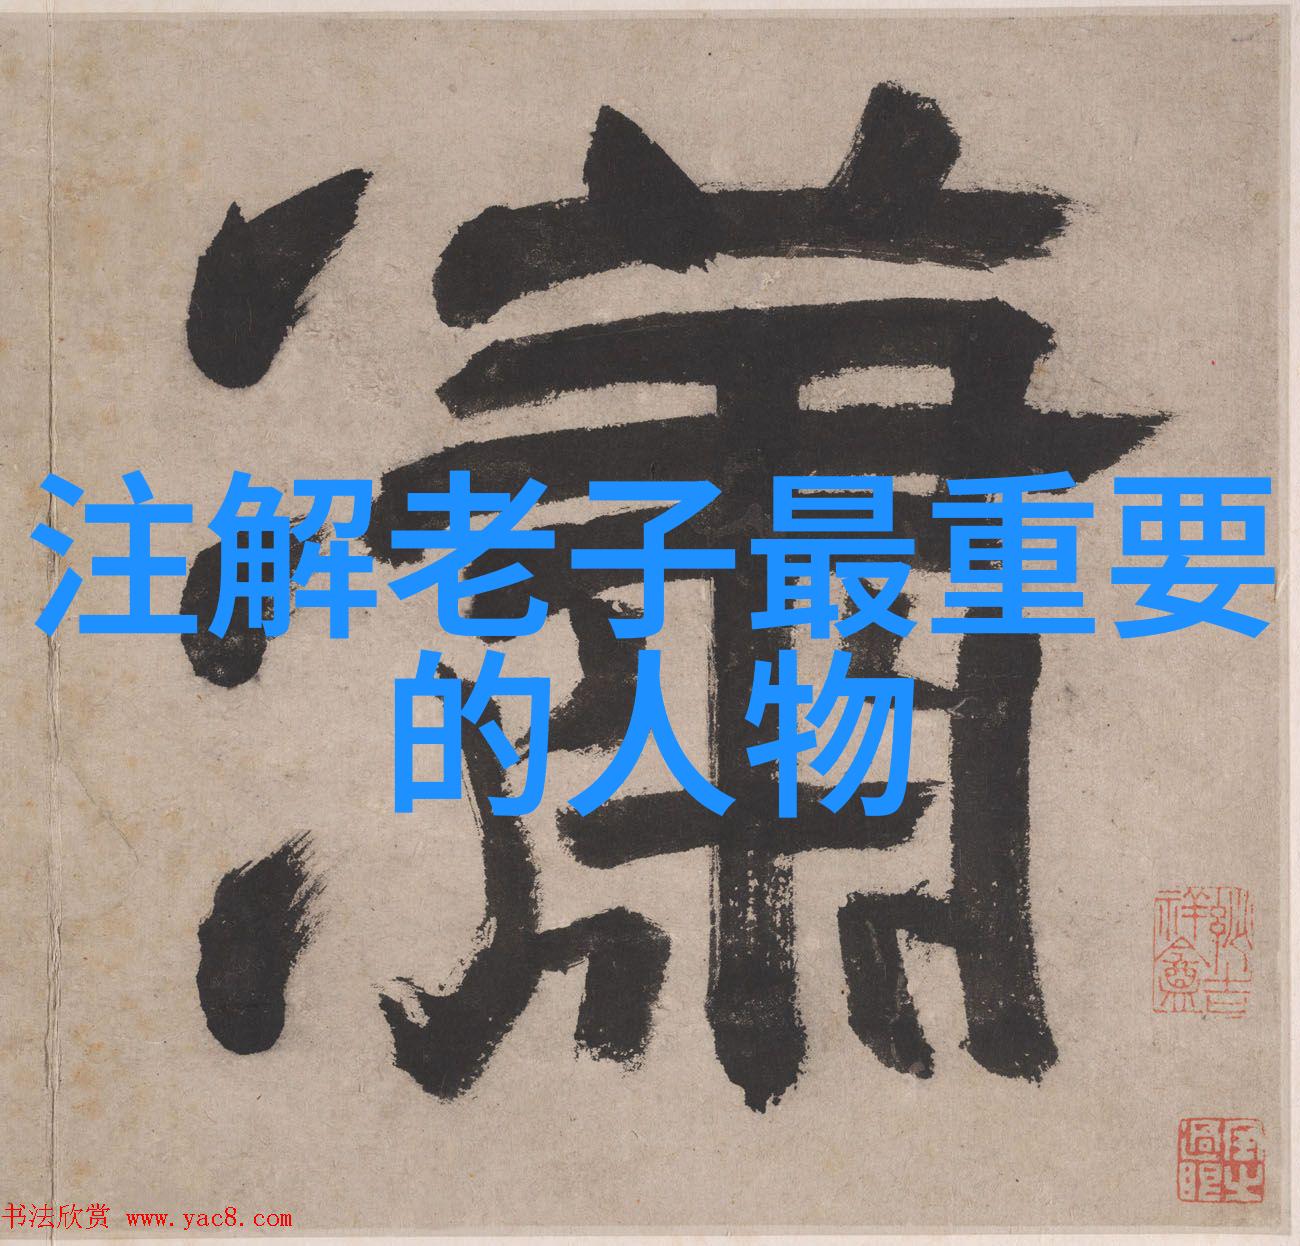 瀟
注解老子最重要
的人物
书法欣赏 www.yac8.com